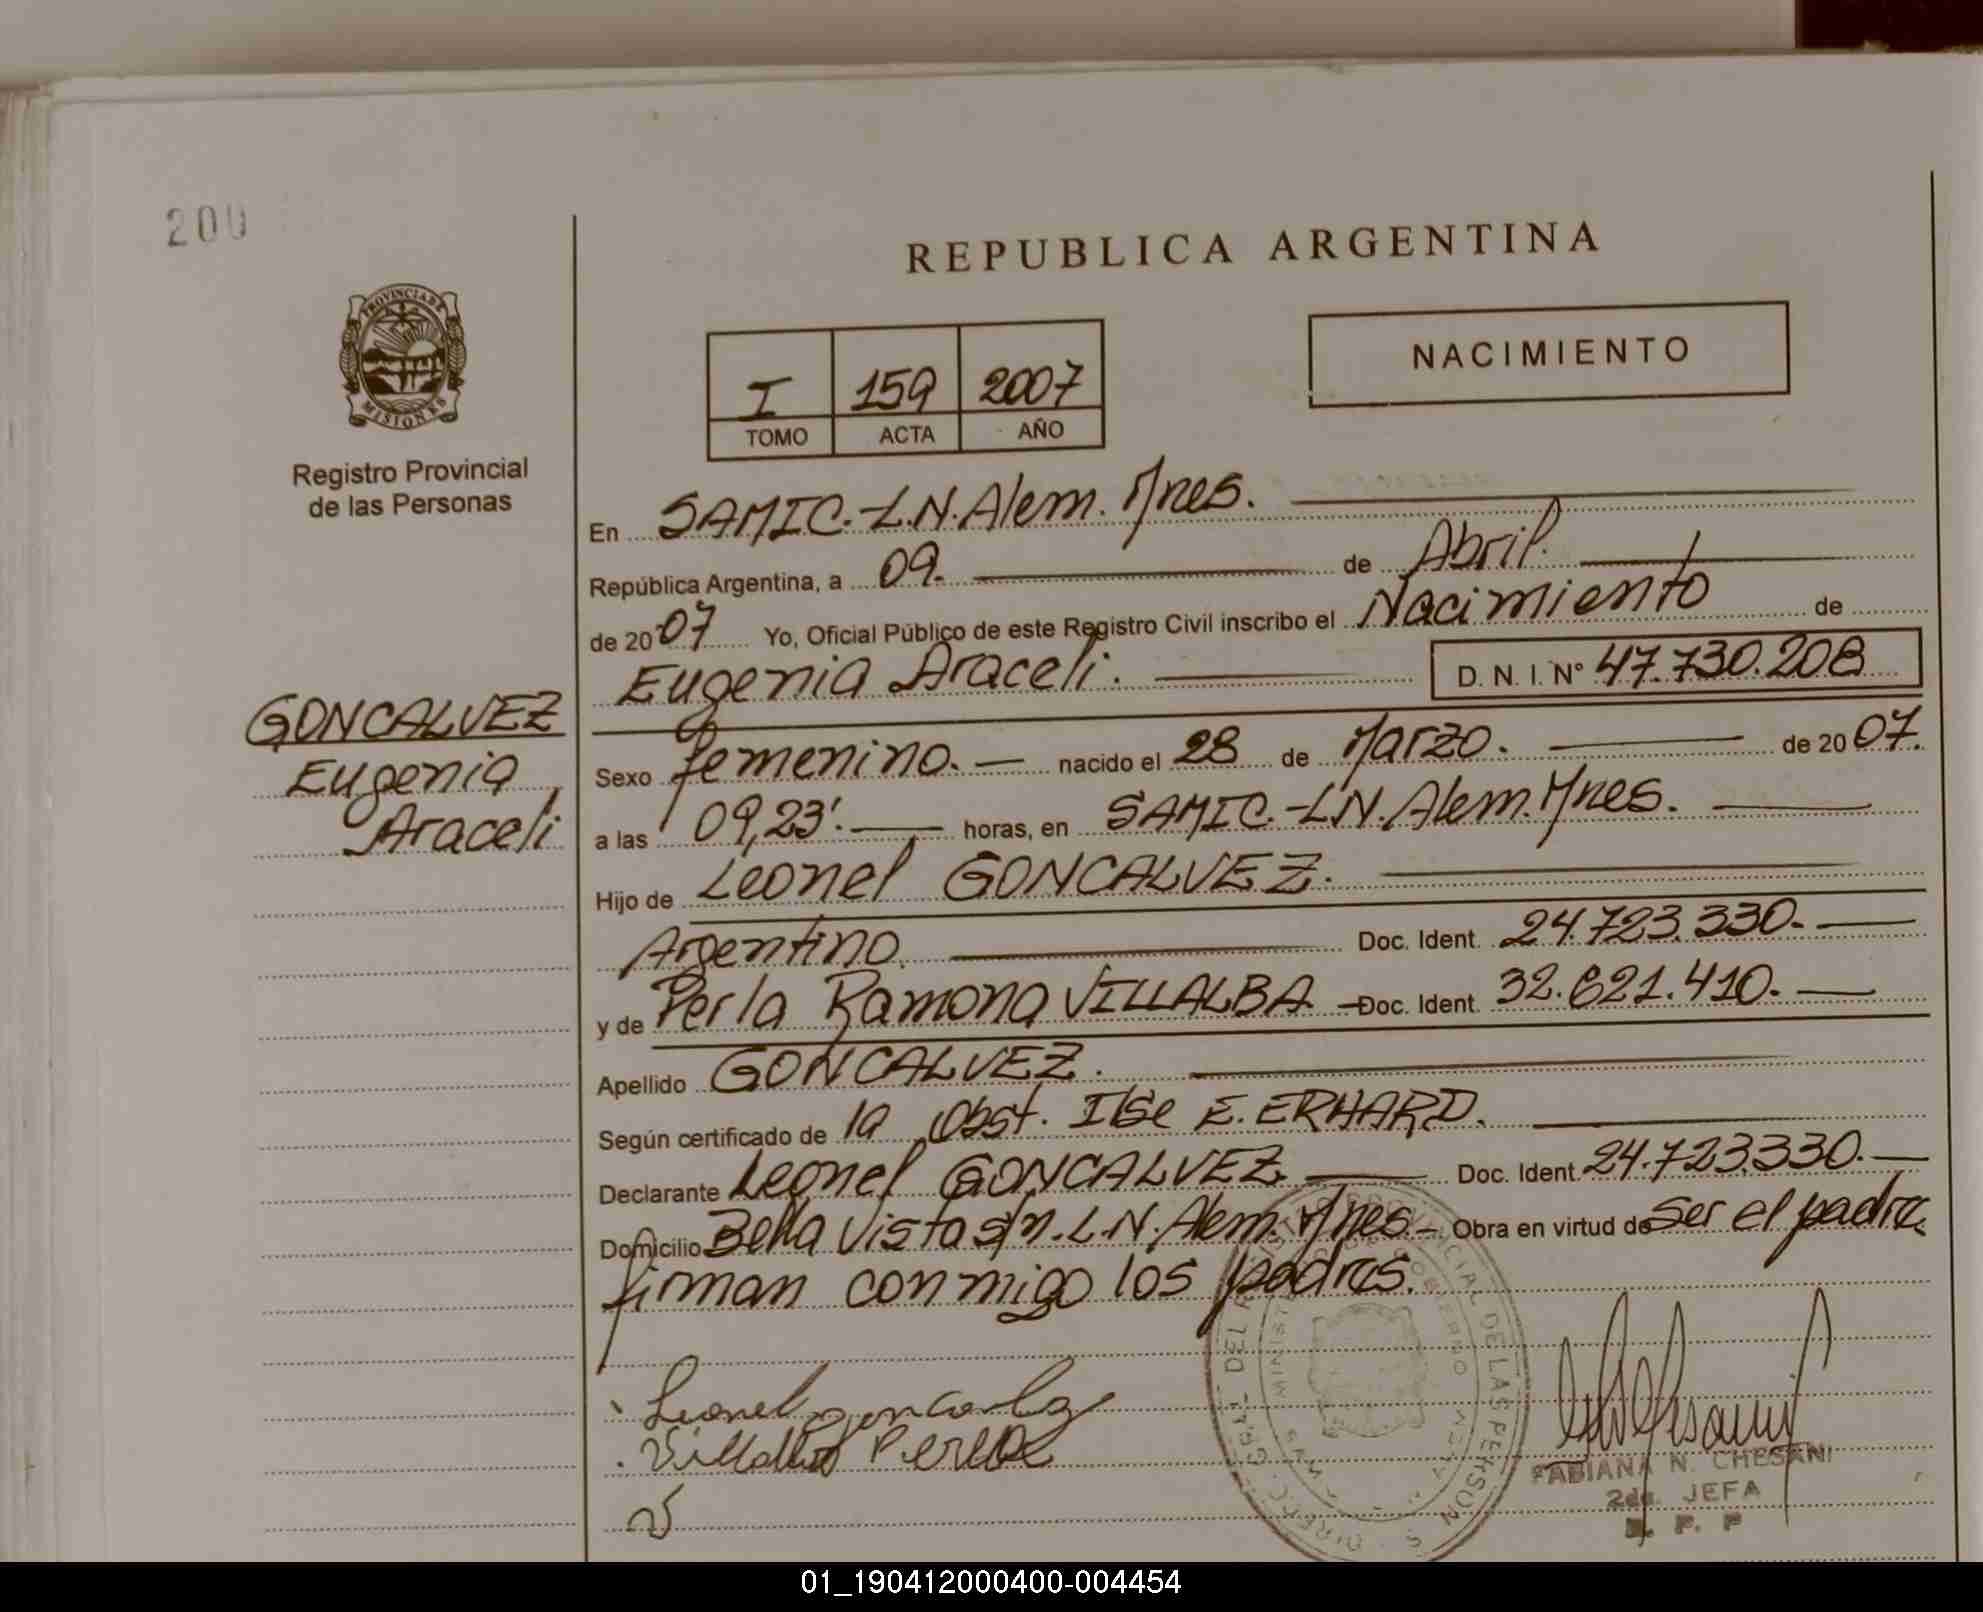 200
REPUBLICA ARGENTINA
PROVINCIA DE
MISIONES
Registro Provincial
de las Personas
I 159 2007
TOMO ACTA AÑO
NACIMIENTO
En SAMIC.-L.N.Alem.Mnes.
República Argentina, a 09. de Abril.
de 2007 Yo, Oficial Público de este Registro Civil inscribo el Nacimiento de
Eugenia Araceli. D. N. I. Nº 47.730.208
GONCALVEZ
Eugenia
Araceli
Sexo femenino. nacido el 28 de Marzo. de 2007.
a las 09,23'. horas, en SAMIC.-LN.Alem.Mnes.
Hijo de Leonel GONCALVEZ.
Argentino. Doc. Ident. 24.723.330.-
y de Perla Ramona VILLALBA - Doc. Ident. 32.621.410.-
Apellido GONCALVEZ.
Según certificado de la Obst. Ilse E. ERHARD.
Declarante Leonel GONCALVEZ. Doc. Ident. 24.723.330.-
Domicilio Bella Vista s/n.L.N.Alem.Mnes.- Obra en virtud de ser el padre.
firman conmigo los padres.
Leonel goncalez
Villalba Perla
FABIANA N. CHESANI
2da. JEFA
R. P. P
01_190412000400-004454